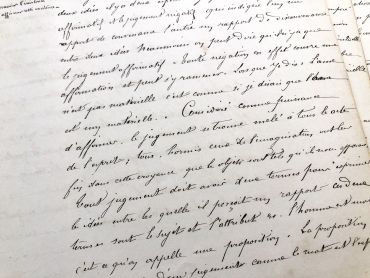 deux idées il y a deux
affirmatif et le jugement négatif qui indique l'un un
rapport de convenance l'autre un rapport de disconvenance
entre deux idées néanmoins on peut dire qu'il n'y a que
le jugement affirmatif. Toute négation en effet couvre une
affirmation et peut s'y ramener. Lorsque je dis : l'ame
n'est pas matérielle c'est comme si je disais que l'ame
est immatérielle. Considéré comme puissance
d'affirmer le jugement se trouve mêlé à tous les actes
de l'esprit, tous, hormis ceux de l'imagination ont leur
fin dans cette croyance que les objets sont tels qu'ils nous apparai
Tout jugement doit avoir deux termes pour exprimer
les idées entre lesquelles il perçoit un rapport. Ces deux
termes sont le sujet et l'attribut
c'est ce qu'on appelle une proposition. La proposition
jugement comme le mot est l'exp